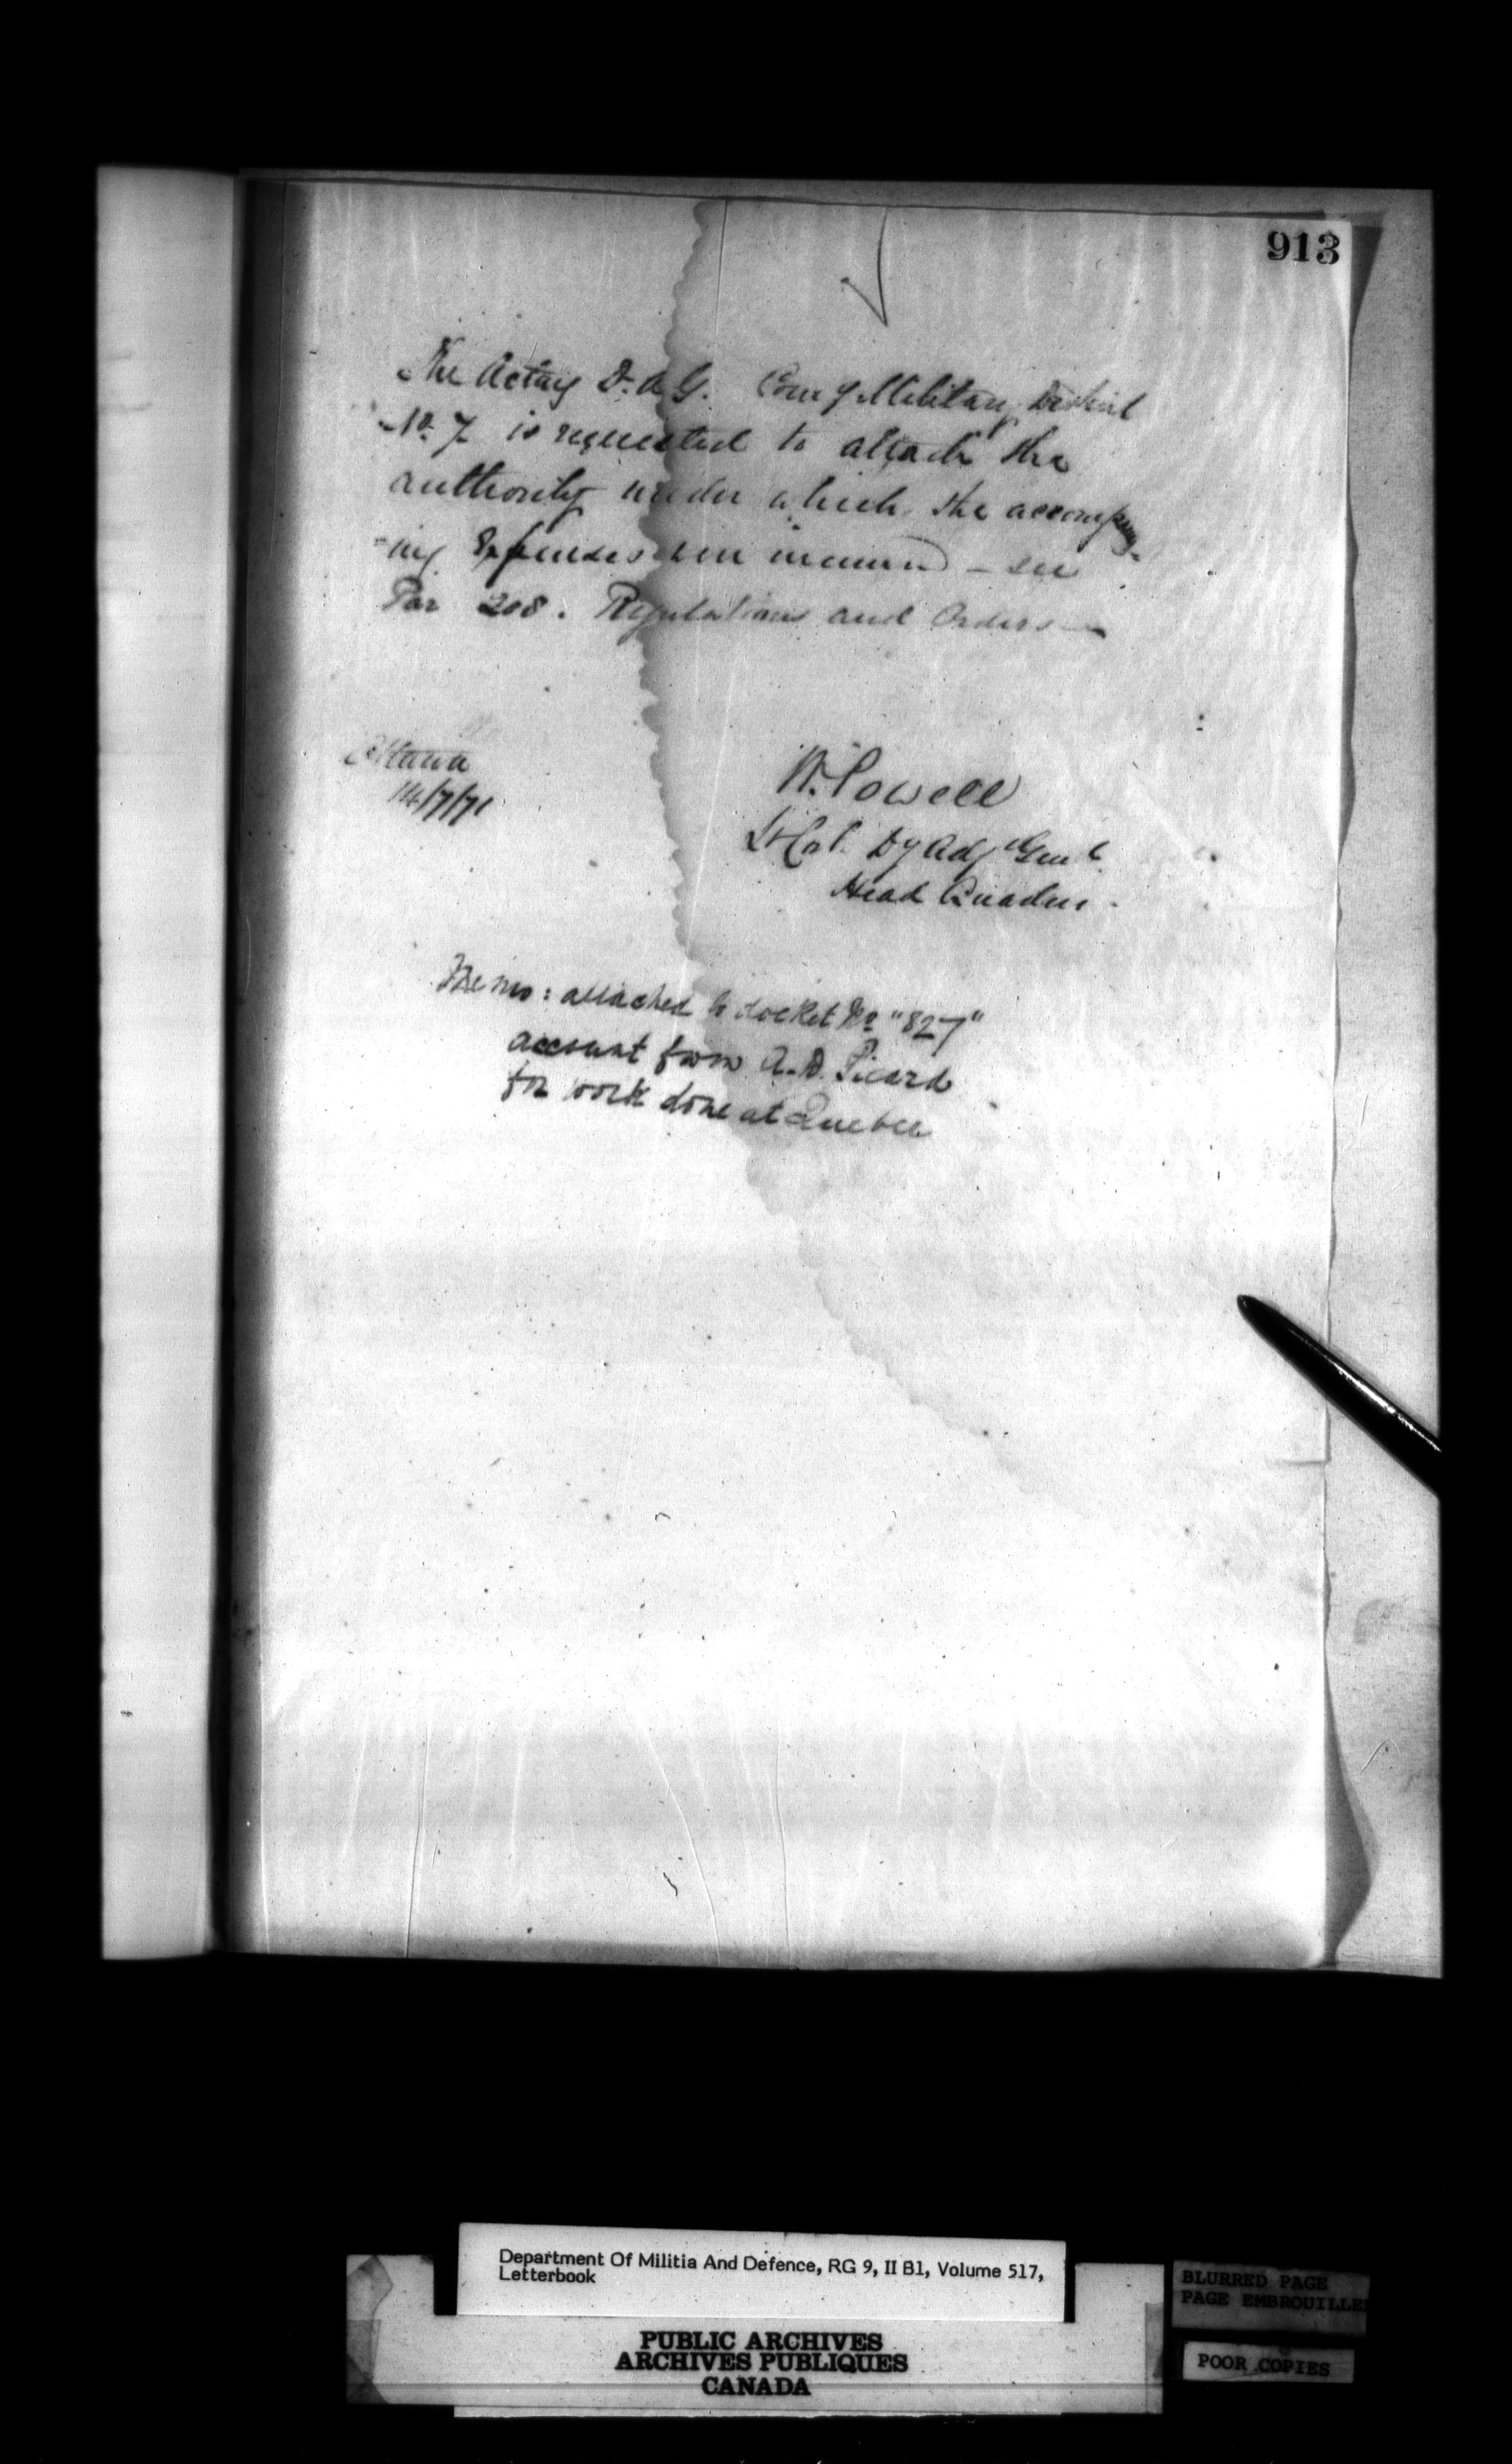 913
The Acting D.A.G. Comg Military District
No. 7 is requested to attach the
authority under which the accompany-
-ing Expenses were incurred – see
Par 208. Regulations and Orders —
Ottawa
14/7/71
W. Powell
Lt Col. Dy Adjt Genl
Head Quarters.
Memo: attached to docket No "827"
account from A.D. Picard
for work done at Quebec
Department Of Militia And Defence, RG 9, II B1, Volume 517,
Letterbook
PUBLIC ARCHIVES
ARCHIVES PUBLIQUES
CANADA
BLURRED PAGE
PAGE EMBROUILLE
POOR COPIES